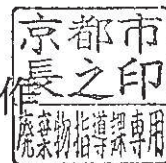 京都市
長之印
廃棄物指導課専用